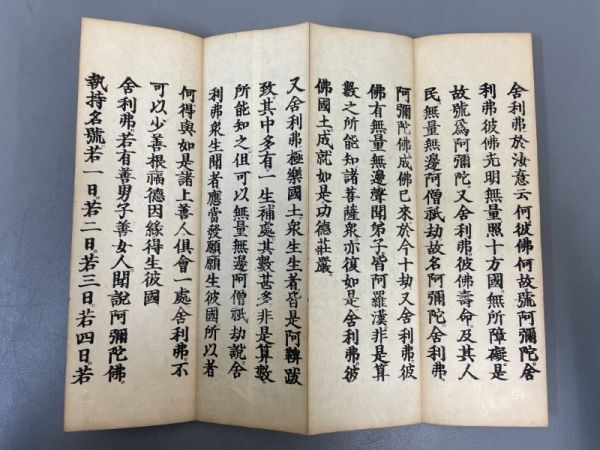 舍利弗於汝意云何彼佛何故號阿彌陀。舍
利弗彼佛光明無量照十方國。無所障礙。是
故號為阿彌陀又舍利弗。彼佛壽命。及其人
民無量無邊阿僧祇劫故名阿彌陀舍利弗。
阿彌陀佛成佛已來於今十劫又舍利弗彼
佛有無量無邊聲聞弟子皆阿羅漢非是算
數之所能知諸菩薩衆亦復如是舍利弗。彼
佛國土。成就如是功德莊嚴。
又舍利弗極樂國土。衆生生者皆是阿鞞跋
致。其中多有一生補處其數甚多非是算數。
所能知之但可以無量無邊阿僧祇劫說。舍
利弗衆生聞者應當發願願生彼國所以者
何得與如是諸上善人俱會一處舍利弗。不
可以少善根福德因緣得生彼國
舍利弗。若有善男子善女人。聞說阿彌陀佛。
執持名號若一日。若二日。若三日若四日。若